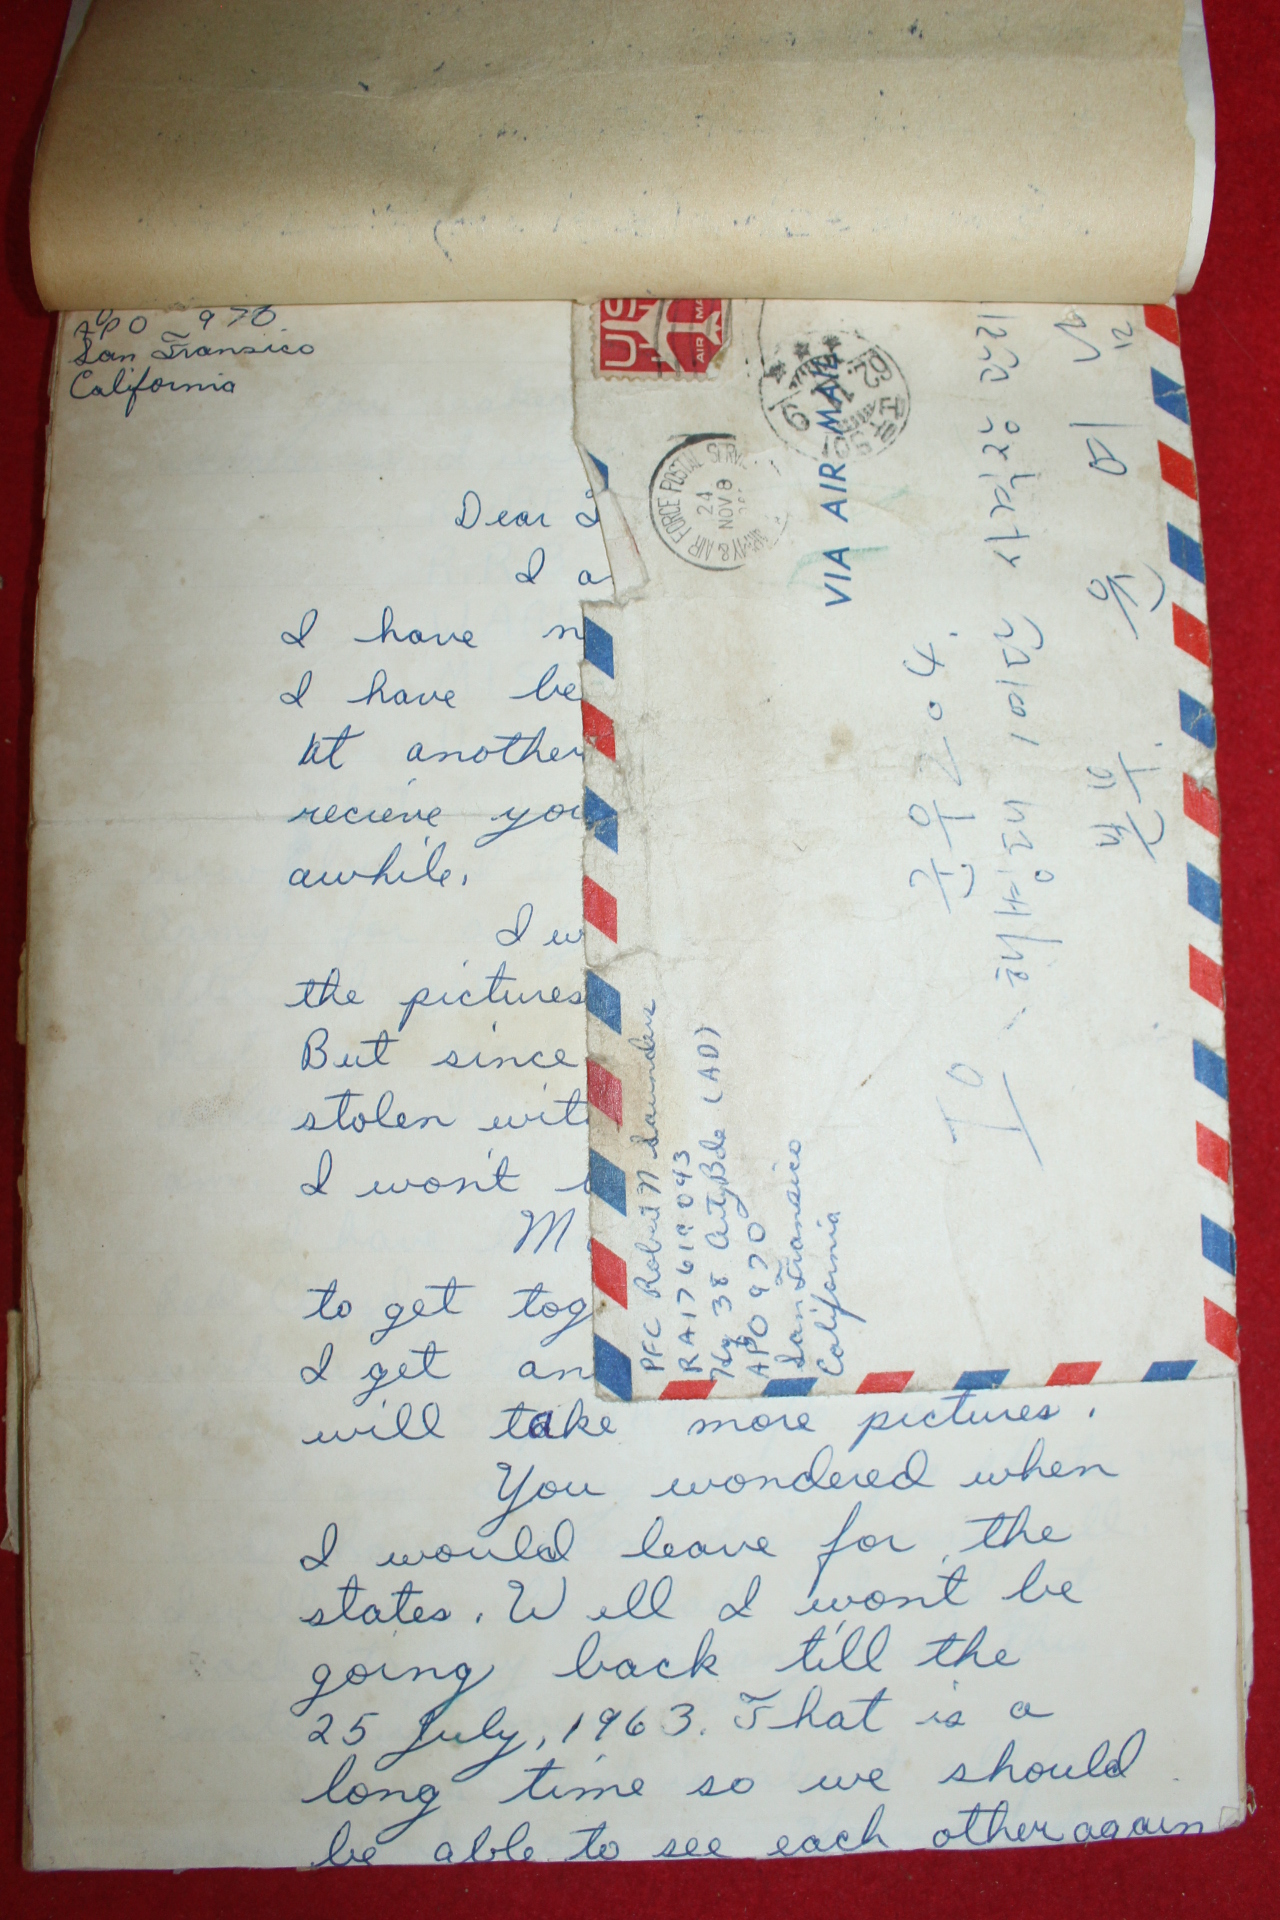 APO 970
San Fransico
California
Dear
I a
I have n
I have be
at another
recieve you
awhile.
I w
the pictures
But since
stolen wit
I won't
M
to get tog
I get an
will take more pictures.
You wondered when
I would leave for the
states. Well I won't be
going back till the
25 July, 1963. That is a
long time so we should
be able to see each other again
US
AIR MA
ARMY & AIR FORCE POSTAL SERV
24
NOV 8
VIA AIR MAIL
PFC Robert N Saunders
RA17619043
Hq 38 Arty Bde (AD)
APO 970
San Fransico
California
군우 204.
TO